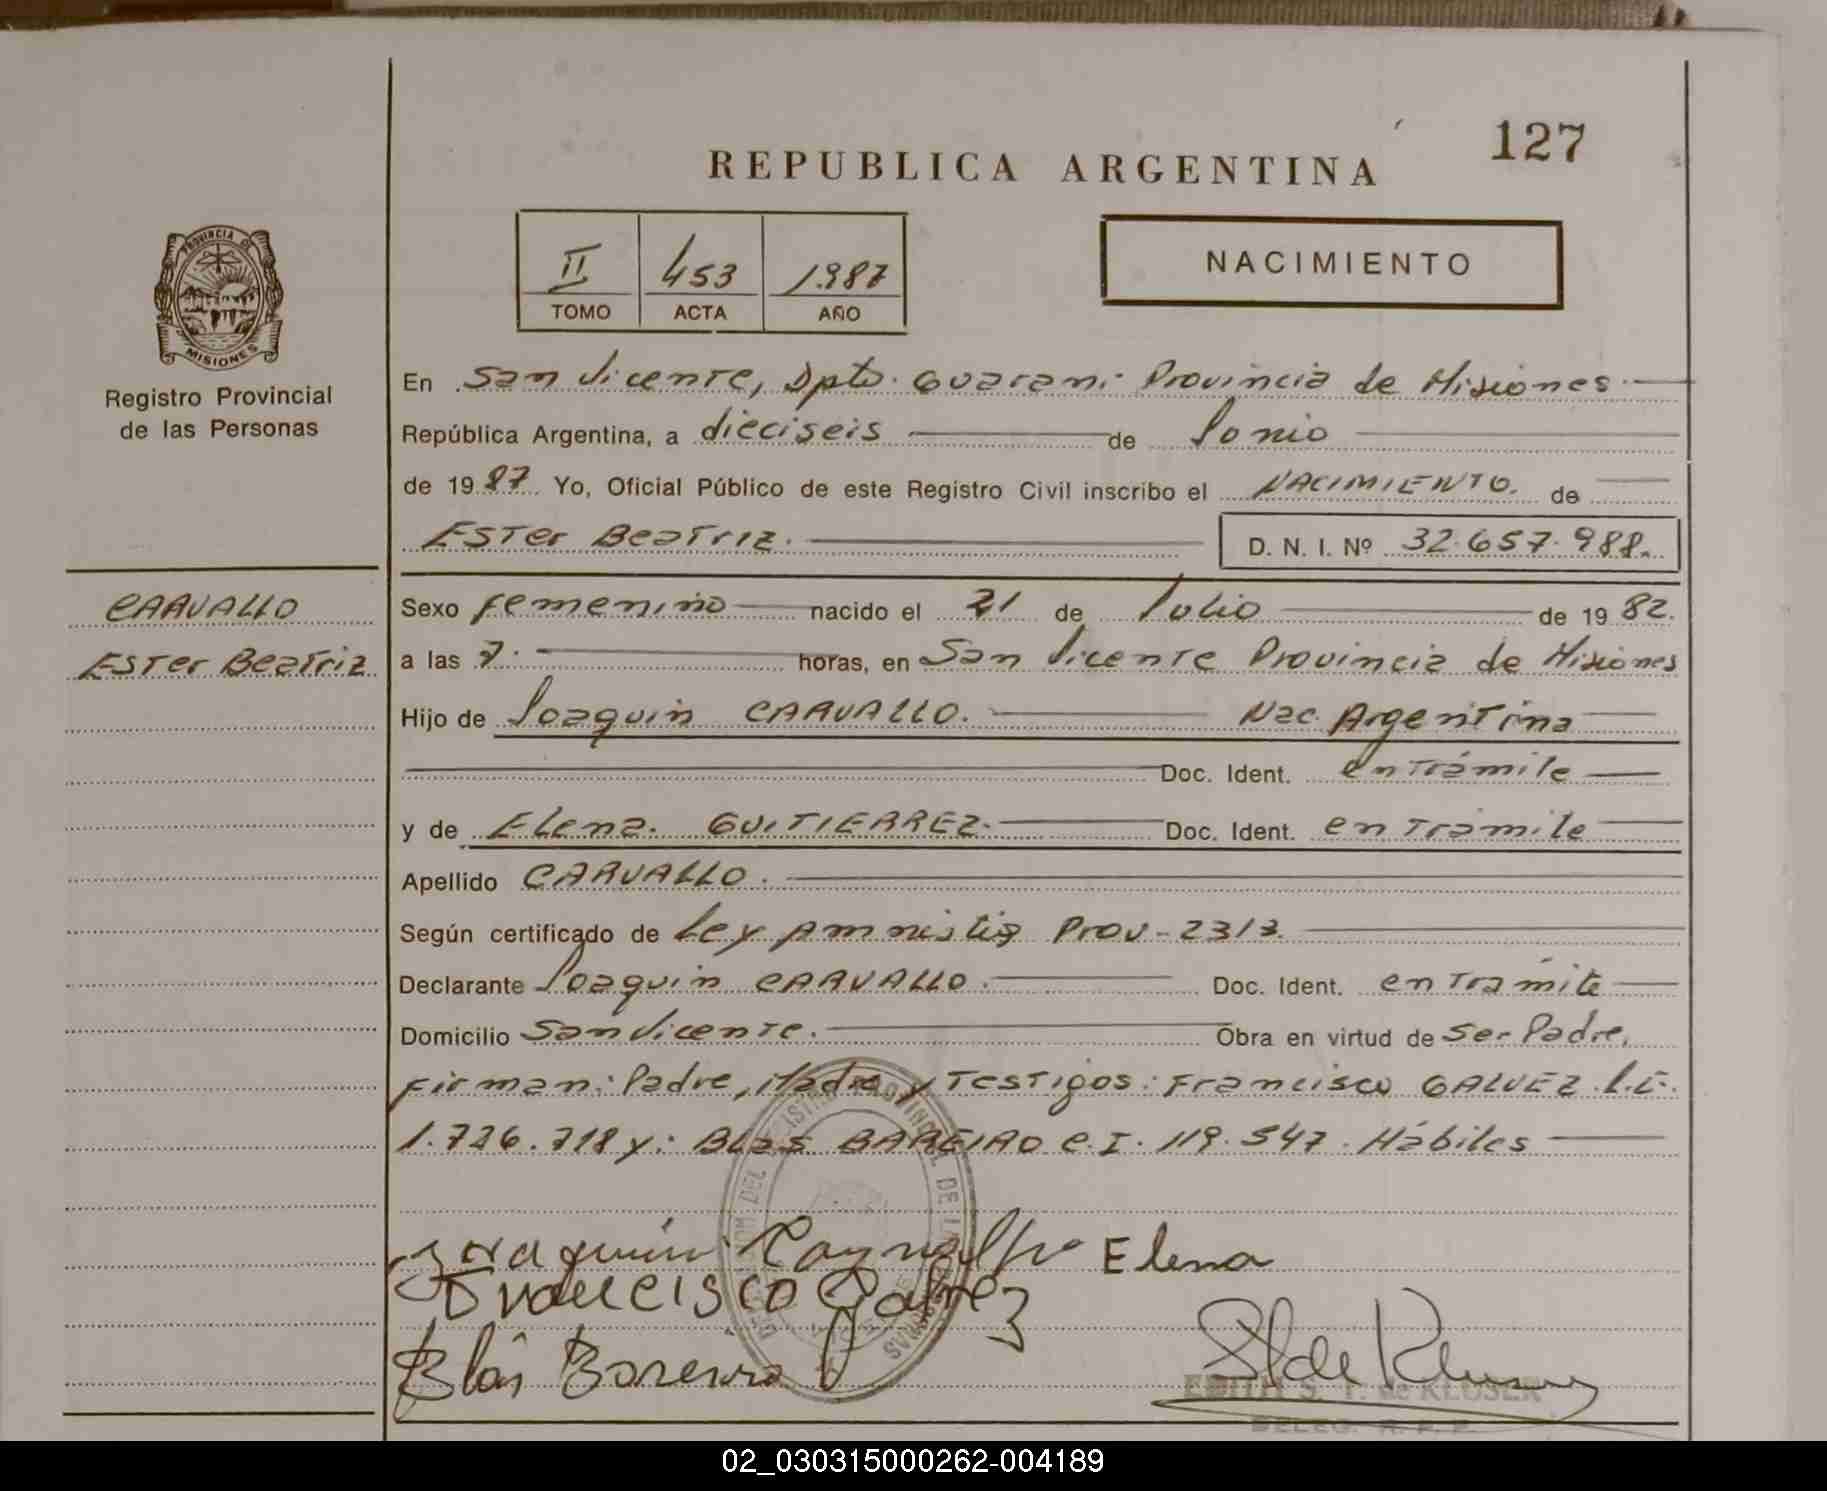 127
REPUBLICA ARGENTINA
II 453 1987
TOMO ACTA AÑO
NACIMIENTO
PROVINCIA DE
MISIONES
Registro Provincial
de las Personas
En San Vicente, Dpto. Guarani Provincia de Misiones
República Argentina, a dieciseis de Junio
de 1987 Yo, Oficial Público de este Registro Civil inscribo el NACIMIENTO. de
Ester Beatriz. D. N. I. Nº 32.657.988.
CARVALLO
Ester Beatriz
Sexo femenino nacido el 21 de Julio de 1982.
a las 7. horas, en San Vicente Provincia de Misiones
Hijo de Joaquin CARVALLO. Nac. Argentina
Doc. Ident. en trámite
y de Elena. GUITIERREZ. Doc. Ident. en trámite
Apellido CARVALLO.
Según certificado de Ley Amnistia Prov-2313.
Declarante Joaquin CARVALLO. Doc. Ident. en tramite
Domicilio San Vicente. Obra en virtud de Ser Padre.
Firman: Padre, Madre y Testigos: Francisco GALVEZ. L.E.
1.726.718 y: Blas BAREIRO C.I. 119.547. Hábiles
Elena
Francisco Galvez
Blás Bareiro
EDITH S. T. de KLUSER
DELEG. R. P. P.
02_030315000262-004189